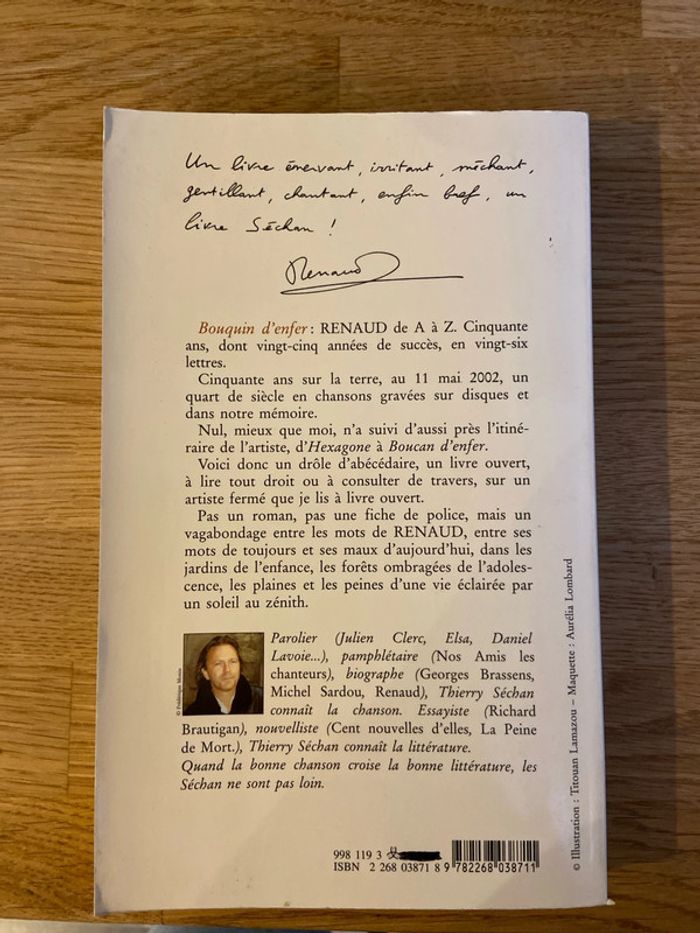 Un livre énervant, irritant, méchant,
gentillant, chantant, enfin bref, un
livre Séchan !
Renaud
Bouquin d'enfer : RENAUD de A à Z. Cinquante
ans, dont vingt-cinq années de succès, en vingt-six
lettres.
Cinquante ans sur la terre, au 11 mai 2002, un
quart de siècle en chansons gravées sur disques et
dans notre mémoire.
Nul, mieux que moi, n'a suivi d'aussi près l'itiné-
raire de l'artiste, d'Hexagone à Boucan d'enfer.
Voici donc un drôle d'abécédaire, un livre ouvert,
à lire tout droit ou à consulter de travers, sur un
artiste fermé que je lis à livre ouvert.
Pas un roman, pas une fiche de police, mais un
vagabondage entre les mots de RENAUD, entre ses
mots de toujours et ses maux d'aujourd'hui, dans les
jardins de l'enfance, les forêts ombragées de l'adoles-
cence, les plaines et les peines d'une vie éclairée par
un soleil au zénith.
Parolier (Julien Clerc, Elsa, Daniel
Lavoie...), pamphlétaire (Nos Amis les
chanteurs), biographe (Georges Brassens,
Michel Sardou, Renaud), Thierry Séchan
connaît la chanson. Essayiste (Richard
Brautigan), nouvelliste (Cent nouvelles d'elles, La Peine
de Mort.), Thierry Séchan connaît la littérature.
Quand la bonne chanson croise la bonne littérature, les
Séchan ne sont pas loin.
© Frédérique Monin
998 119 3
ISBN 2 268 03871 8
9 782268 038711
© Illustration : Titouan Lamazou – Maquette : Aurélia Lombard